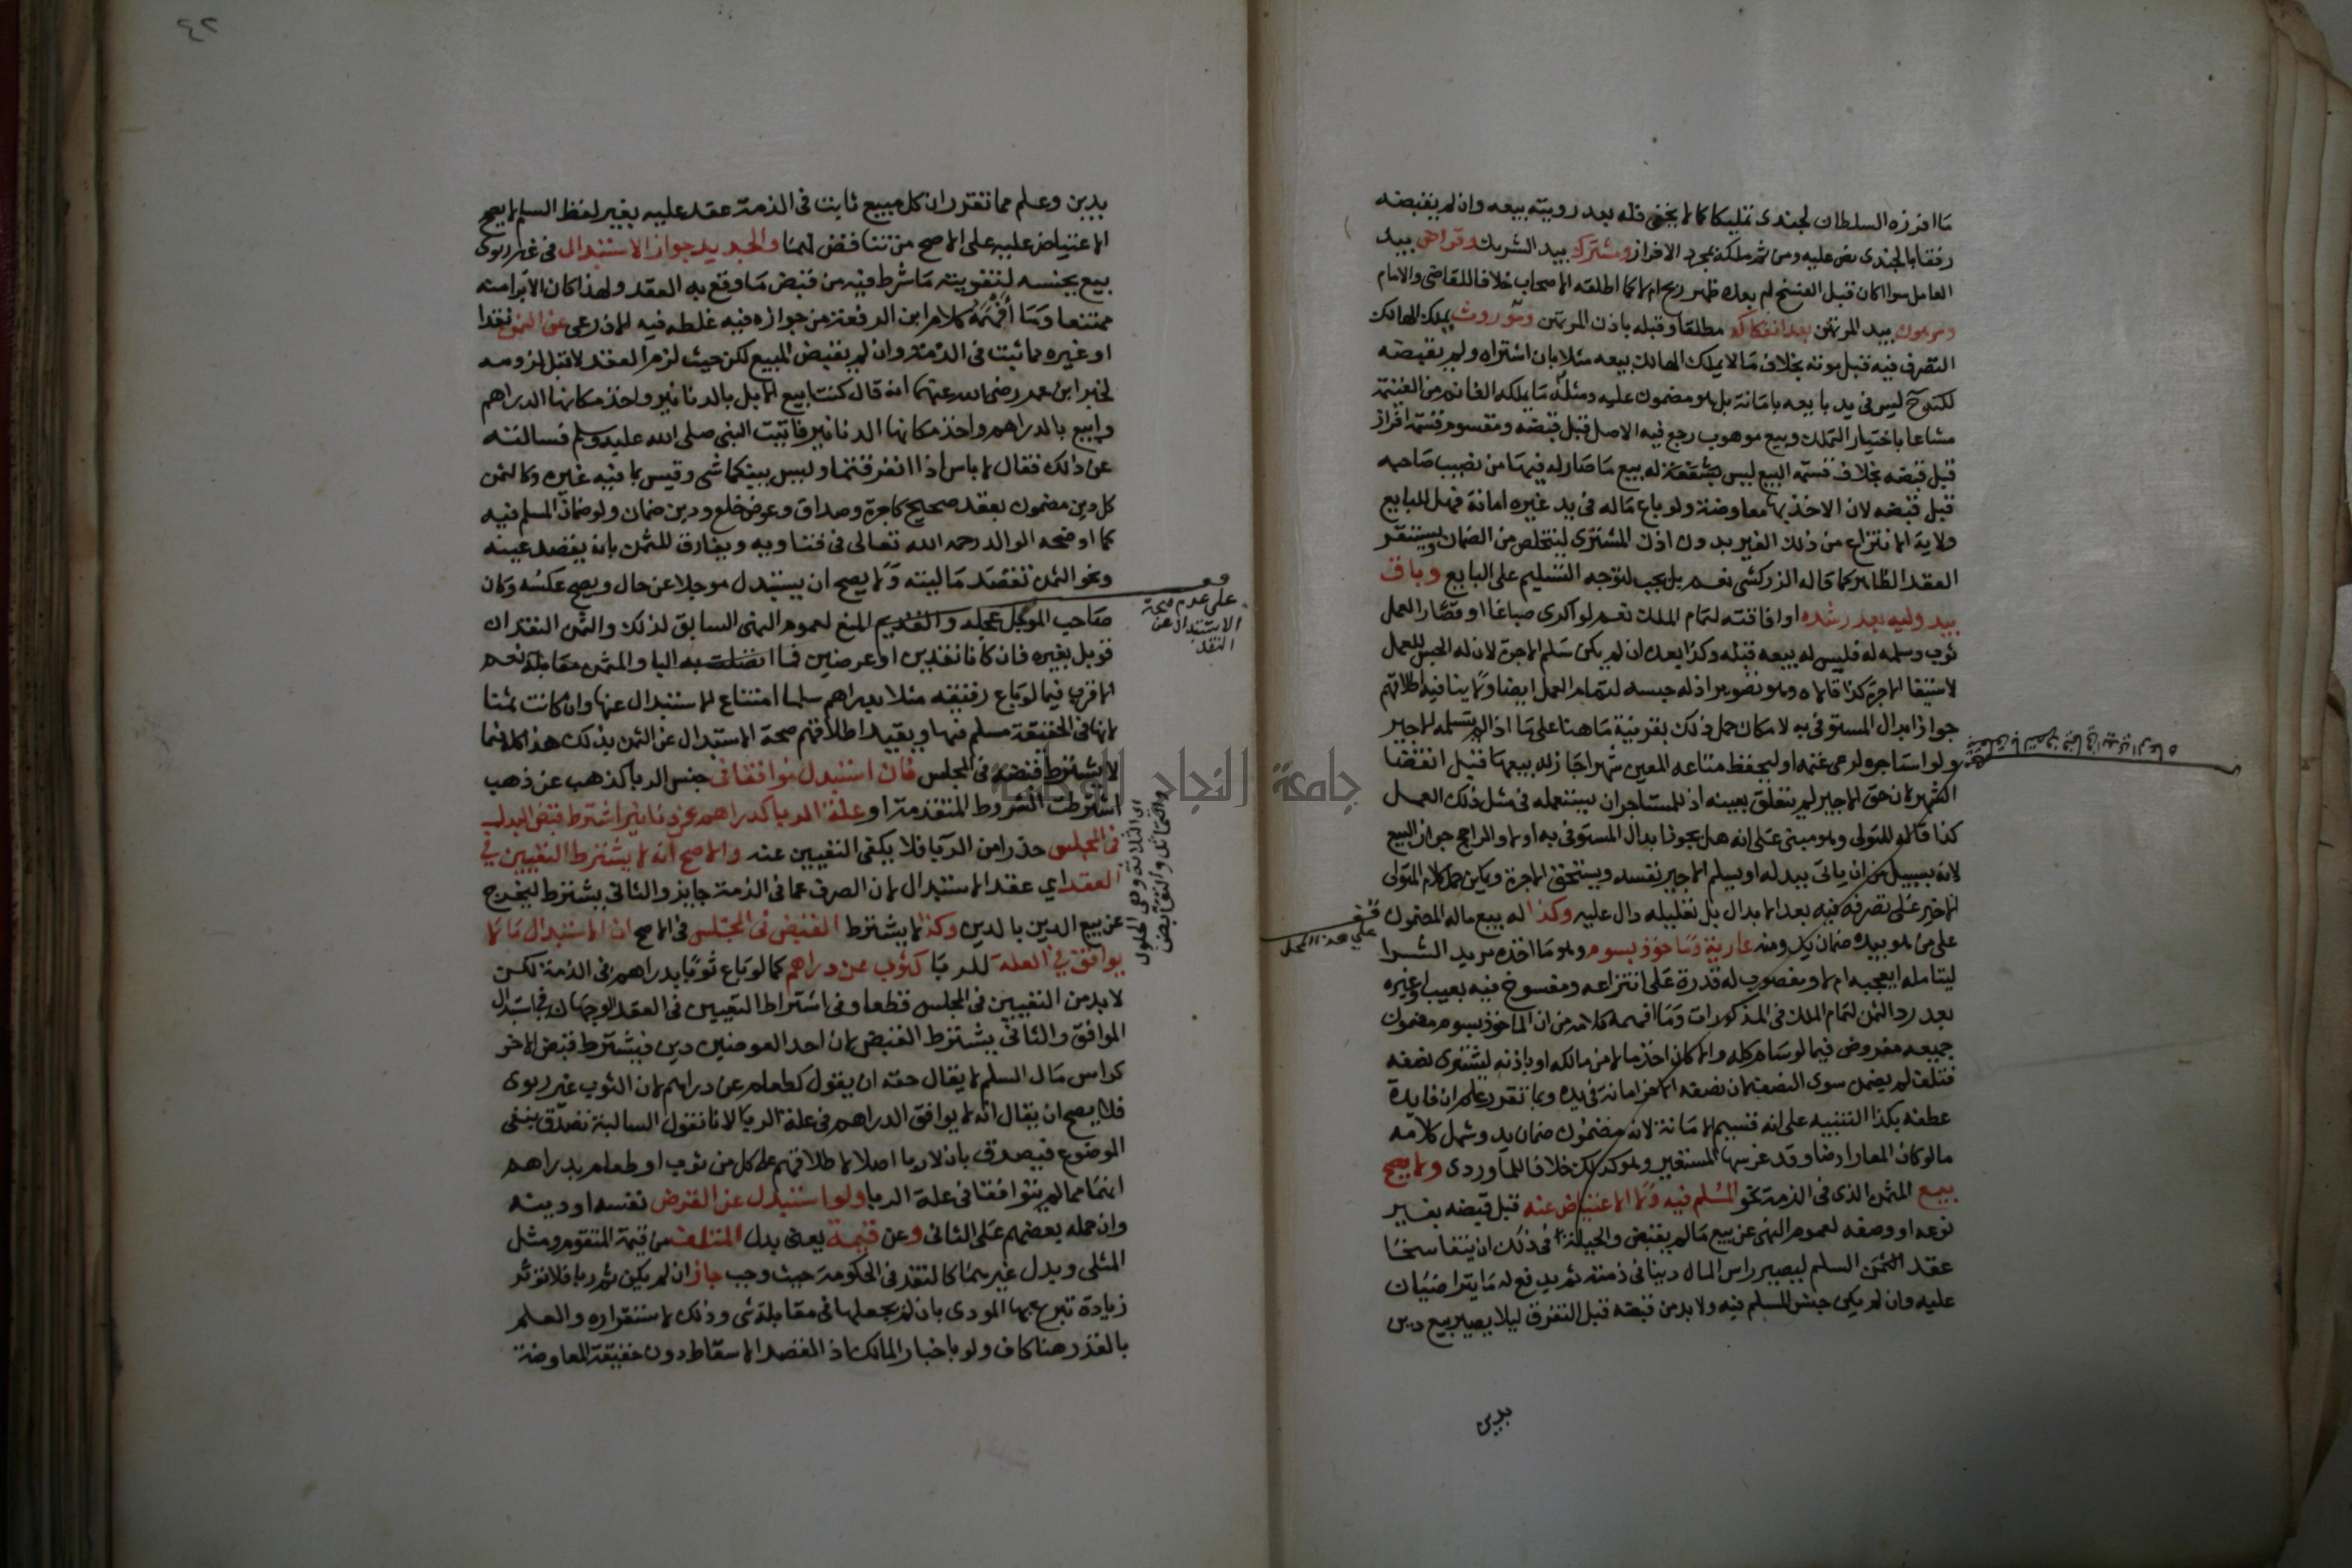 ما افرزه السلطان لجندى تمليكا كما لا يخفى فله بعد رويته بيعه وان لم يقبضه
رفقا بالجندى نص عليه ومن ثم ملكه بمجرد الافراز ومشترك بيد الشريك وقراض بيد
العامل سوا اكان قبل الفسخ ام بعده ظهر ربح ام لا كما اطلقه الاصحاب خلافا للقاضى والامام
ومرهون بيد المرتهن بعد انفكاكه مطلقا وقبله باذن المرتهن وموروث يملك الهالك
التصرف فيه قبل موته بخلاف ما لا يملك الهالك بيعه مثلا بان اشتراه ولم يقبضه
لكونه ليس فى يد بايعه بامانة بل هو مضمون عليه ومثله ما يملكه الغانم من الغنيمة
مشاعا باختيار التملك وبيع موهوب رجع فيه الاصل قبل قبضه ومقسوم قسمة افراز
قبل قبضه بخلاف قسمة البيع ليس له بيع ما صار له فيها من نصيب صاحبه
قبل قبضه لان الاخذ بها معاوضة ولو باع ماله فى يد غيره امانة فهل للبايع
ولاية الانتزاع من ذلك الغير بدون اذن المشترى ليتخلص من الضمان ويستقر
العقد الظاهر كما قاله الزركشى نعم بل يجب لتوجه التسليم على البايع وباق
بيد وليه بعد رشده او افاقته لتمام الملك نعم لو اكرى صباغا او قصارا لعمل
ثوب وسلمه له فليس له بيعه قبله وكذا بعده ان لم يكن سلم الاجرة لان له الحبس للعمل
لاستيفا الاجرة كذا قالاه وهو تصوير اذ له حبسه لتمام العمل ايضا ولا ينافيه اطلاقهم
جواز ابدال المستوفى به لامكان حمل ذلك بقرينة ما هنا على ما اذا لم يتسلمه الاجير
ولو استاجره لرعى غنمه او ليحفظ متاعه المعين شهرا جاز له بيعها قبل انقضا
الشهر لان حق الاجير لم يتعلق بعينه اذ للمستاجر ان يستعمله فى مثل ذلك العمل
كذا قاله المتولى وهو مبنى على انه هل يجوز ابدال المستوفى به او لا والراجح جواز البيع
لانه بسبيل من ان ياتى ببدله او يسلم الاجير نفسه ويستحق الاجرة ويمكن حمل كلام المتولى
الاخير على تصرفه فيه بعد الابدال بل تعليله دال عليه وكذا له بيع ماله المضمون
على من هو بيده ضمان يد ومنه عارية وماخوذ بسوم وهو ما اخذه مريد الشرا
ليتامله ايعجبه ام لا ومغصوب له قدرة على انتزاعه ومفسوخ فيه بعيب او غيره
بعد رد الثمن لتمام الملك فى المذكورات وما افهمه كلامه من ان الماخوذ بسوم مضمون
جميعه مفروض فيما لو سام كله والا كان اخذ مالا من مالكه او باذنه ليشترى نصفه
فتلف لم يضمن سوى النصف لان نصفه الاخر امانة فى يده وبما تقرر علم ان فايدة
عطفه بكذا التنبيه على انه قسيم الامانة لانه مضمون ضمان يد وشمل كلامه
ما لو كان المعار ارضا وقد غرسها المستعير وهو كذلك خلافا للماوردى ولا يصح
بيع المثمن الذى فى الذمة نحو المسلم فيه ولا الاعتياض عنه قبل قبضه بغير
نوعه او وصفه لعموم النهى عن بيع ما لم يقبض والحيلة فى ذلك ان يتفاسخا
عقد السلم ليصير راس المال دينا فى ذمته ثم يدفع له ما يتراضيان
عليه وان لم يكن جنس المسلم فيه ولا بد من قبضه قبل التفرق ليلا يصير بيع دين
بدين
قف
على هذا المحل
٤٢
بدين وعلم مما تقرر ان كل مبيع ثابت فى الذمة عقد عليه بغير لفظ السلم لا يصح
الاعتياض عليه على الاصح من تناقض لهما والجديد جواز الاستبدال فى غير ربوى
بيع بجنسه لتفويته ما شرط فيه من قبض ما وقع به العقد ولهذا كان الابرا منه
ممتنعا وما افهمه كلام ابن الرفعة من جوازه فيه غلطه فيه الاذرعى عن الثمن نقدا
او غيره مما ثبت فى الذمة وان لم يقبض المبيع لكن حيث لزم العقد لا قبل لزومه
لخبر ابن عمر رضى الله عنهما انه قال كنت ابيع الابل بالدنانير واخذ مكانها الدراهم
وابيع بالدراهم واخذ مكانها الدنانير فاتيت النبى صلى الله عليه وسلم فسالته
عن ذلك فقال لا باس اذا تفرقتما وليس بينكما شى وقيس بما فيه غيره وكالثمن
كل دين مضمون بعقد صحيح كاجرة وصداق وعوض خلع ودين ضمان ولو ضمان المسلم فيه
كما اوضحه الوالد رحمه الله تعالى فى فتاويه ويفارق المثمن بانه يقصد عينه
ونحو الثمن تقصد ماليته ولا يصح ان يستبدل موجلا عن حال ويصح عكسه وكان
صاحب الموجل عجله والقديم المنع لعموم النهى السابق لذلك والثمن النقد ان
قوبل بغيره فان كانا نقدين او عرضين فما اتصلت به البا والمثمن مقابله نعم
الاقرب فيما لو باع رقيقه مثلا بدراهم سلما امتناع الاستبدال عنها وان كانت ثمنا
لانها فى الحقيقة مسلم فيها ويقيد اطلاقهم صحة الاستبدال عن الثمن بذلك هذا كله فيما
لا يشترط قبضه فى المجلس فان استبدل موافقا فى جنس الربا كذهب عن ذهب
اشترطت الشروط المتقدمة او علة الربا كدراهم عن دنانير اشترط قبض البدل
فى المجلس حذرا من الربا فلا يكفى التعيين عنه والاصح انه لا يشترط التعيين فى
العقد اى عقد الاستبدال لان الصرف عما فى الذمة جايز والثانى يشترط ليخرج
عن بيع الدين بالدين وكذا لا يشترط القبض فى المجلس فى الاصح ان استبدل ما لا
يوافق فى العلة للربا كثوب عن دراهم كما لو باع ثوبا بدراهم فى الذمة لكن
لا بد من التعيين فى المجلس قطعا وفى اشتراط التعيين فى العقد الوجهان فى استبدال
الموافق والثانى يشترط القبض لان احد العوضين دين فيشترط قبض الاخر
كراس مال السلم لا يقال حقه ان يقول كطعام عن دراهم لان الثوب غير ربوى
فلا يصح ان يقال انه لا يوافق الدراهم فى علة الربا لانا نقول السالبة تصدق بنفى
الموضوع فيصدق بان لا ربا اصلا لاطلاقهم على كل من ثوب او طعام بدراهم
انهما مما لم يتوافقا فى علة الربا ولو استبدل عن القرض نفسه او دينه
وان حمله بعضهم على الثانى وعن قيمة يعنى بدل المتلف من قيمة المتقوم ومثل
المثلى وبدل غيرهما كالنقد فى الحكومة حيث وجب جاز ان لم يكن ثم ربا فلا توثر
زيادة تبرع بها المودى بان لم يجعلها فى مقابلة شى وذلك لاستقراره والعلم
بالقدر هنا كاف ولو باخبار المالك اذ القصد الاسقاط دون حقيقة المعاوضة
قف
على عدم صحة
الاستبدال عن
النقد
اى الثلاثة وهى الحلول
والتماثل والتقابض
جامعة النجاح الوطنية